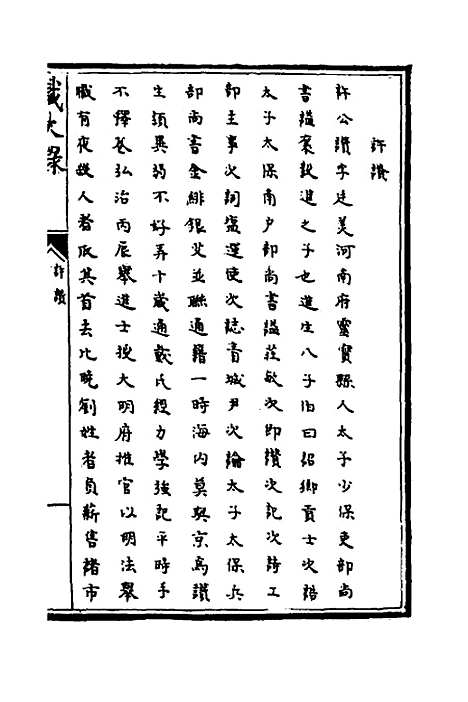 許讚
許公讚字廷美河南府靈寶縣人太子少保吏部尚
書謚襄毅進之子也進生八子伯曰詔鄉貢士次誥
太子太保南户部尚書謚莊敏次即讚次記次詩工
部主事次詞鹽運使次誌青城尹次論太子太保兵
部尚書金緋銀艾並聯通籍一時海内莫與京焉讚
生頭異弱不好弄十歲通戴氏經力學強記平時手
不釋卷弘治丙辰舉進士授大明府推官以明法舉
職有夜殺人者戕其首去比曉劉姓者負薪售諸市
識大錄
許讚